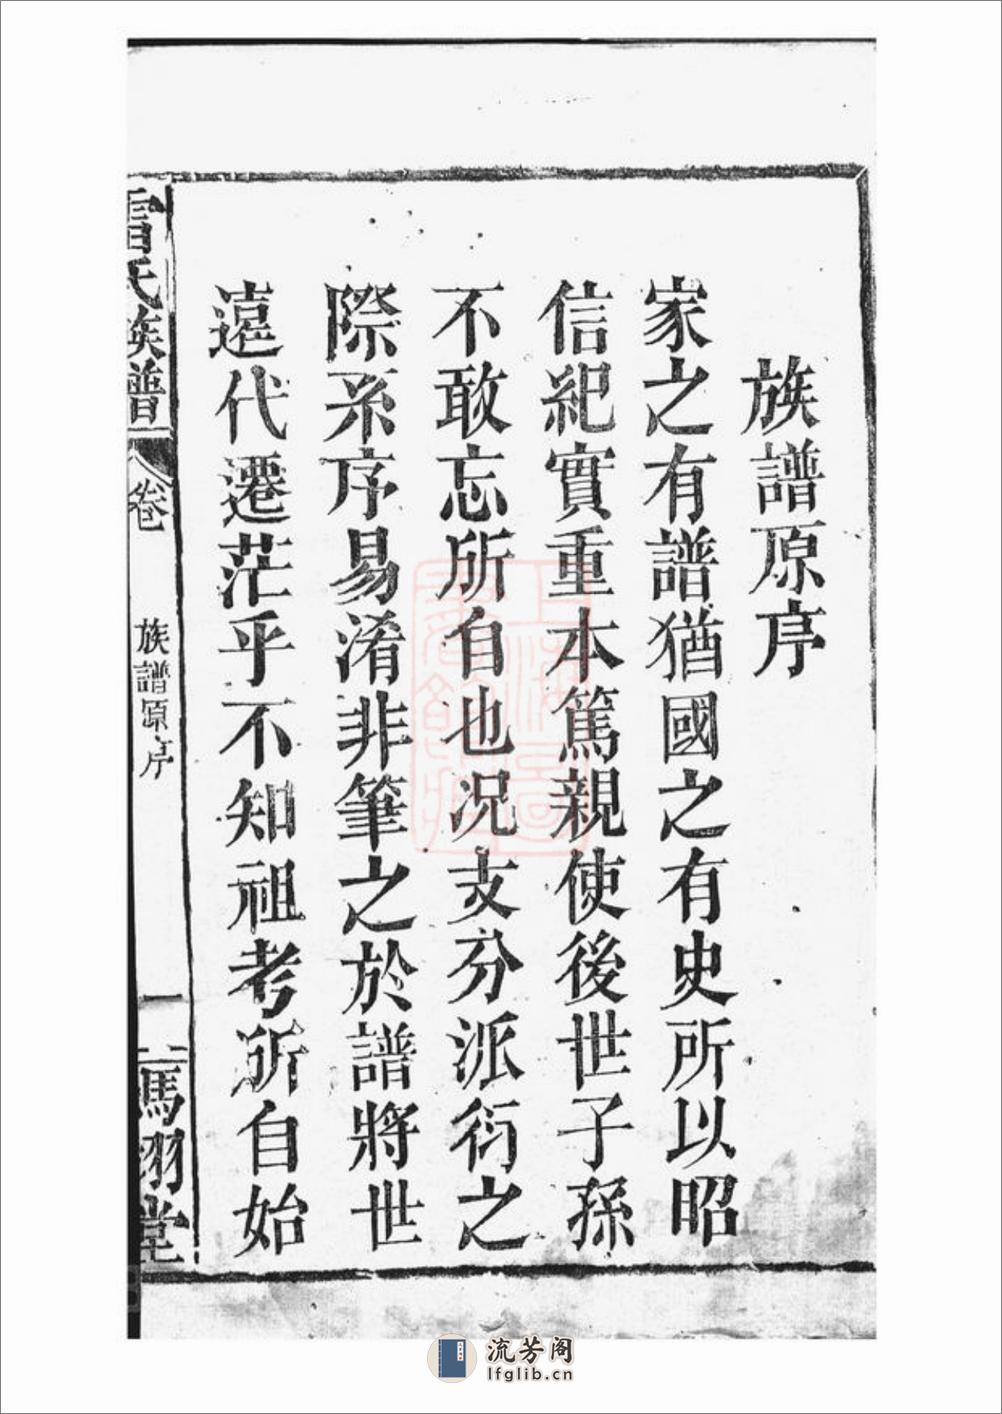 族譜原序
家之有譜猶國之有史所以昭
信紀實重本篤親使後世子孫
不敢忘所自也况支分派衍之
際系序易淆非筆之於譜將世
遠代遷茫乎不知祖考所自始
氏族譜
卷
族譜原序
一
馮翊堂
上海圖
流芳阁
lfglib.cn